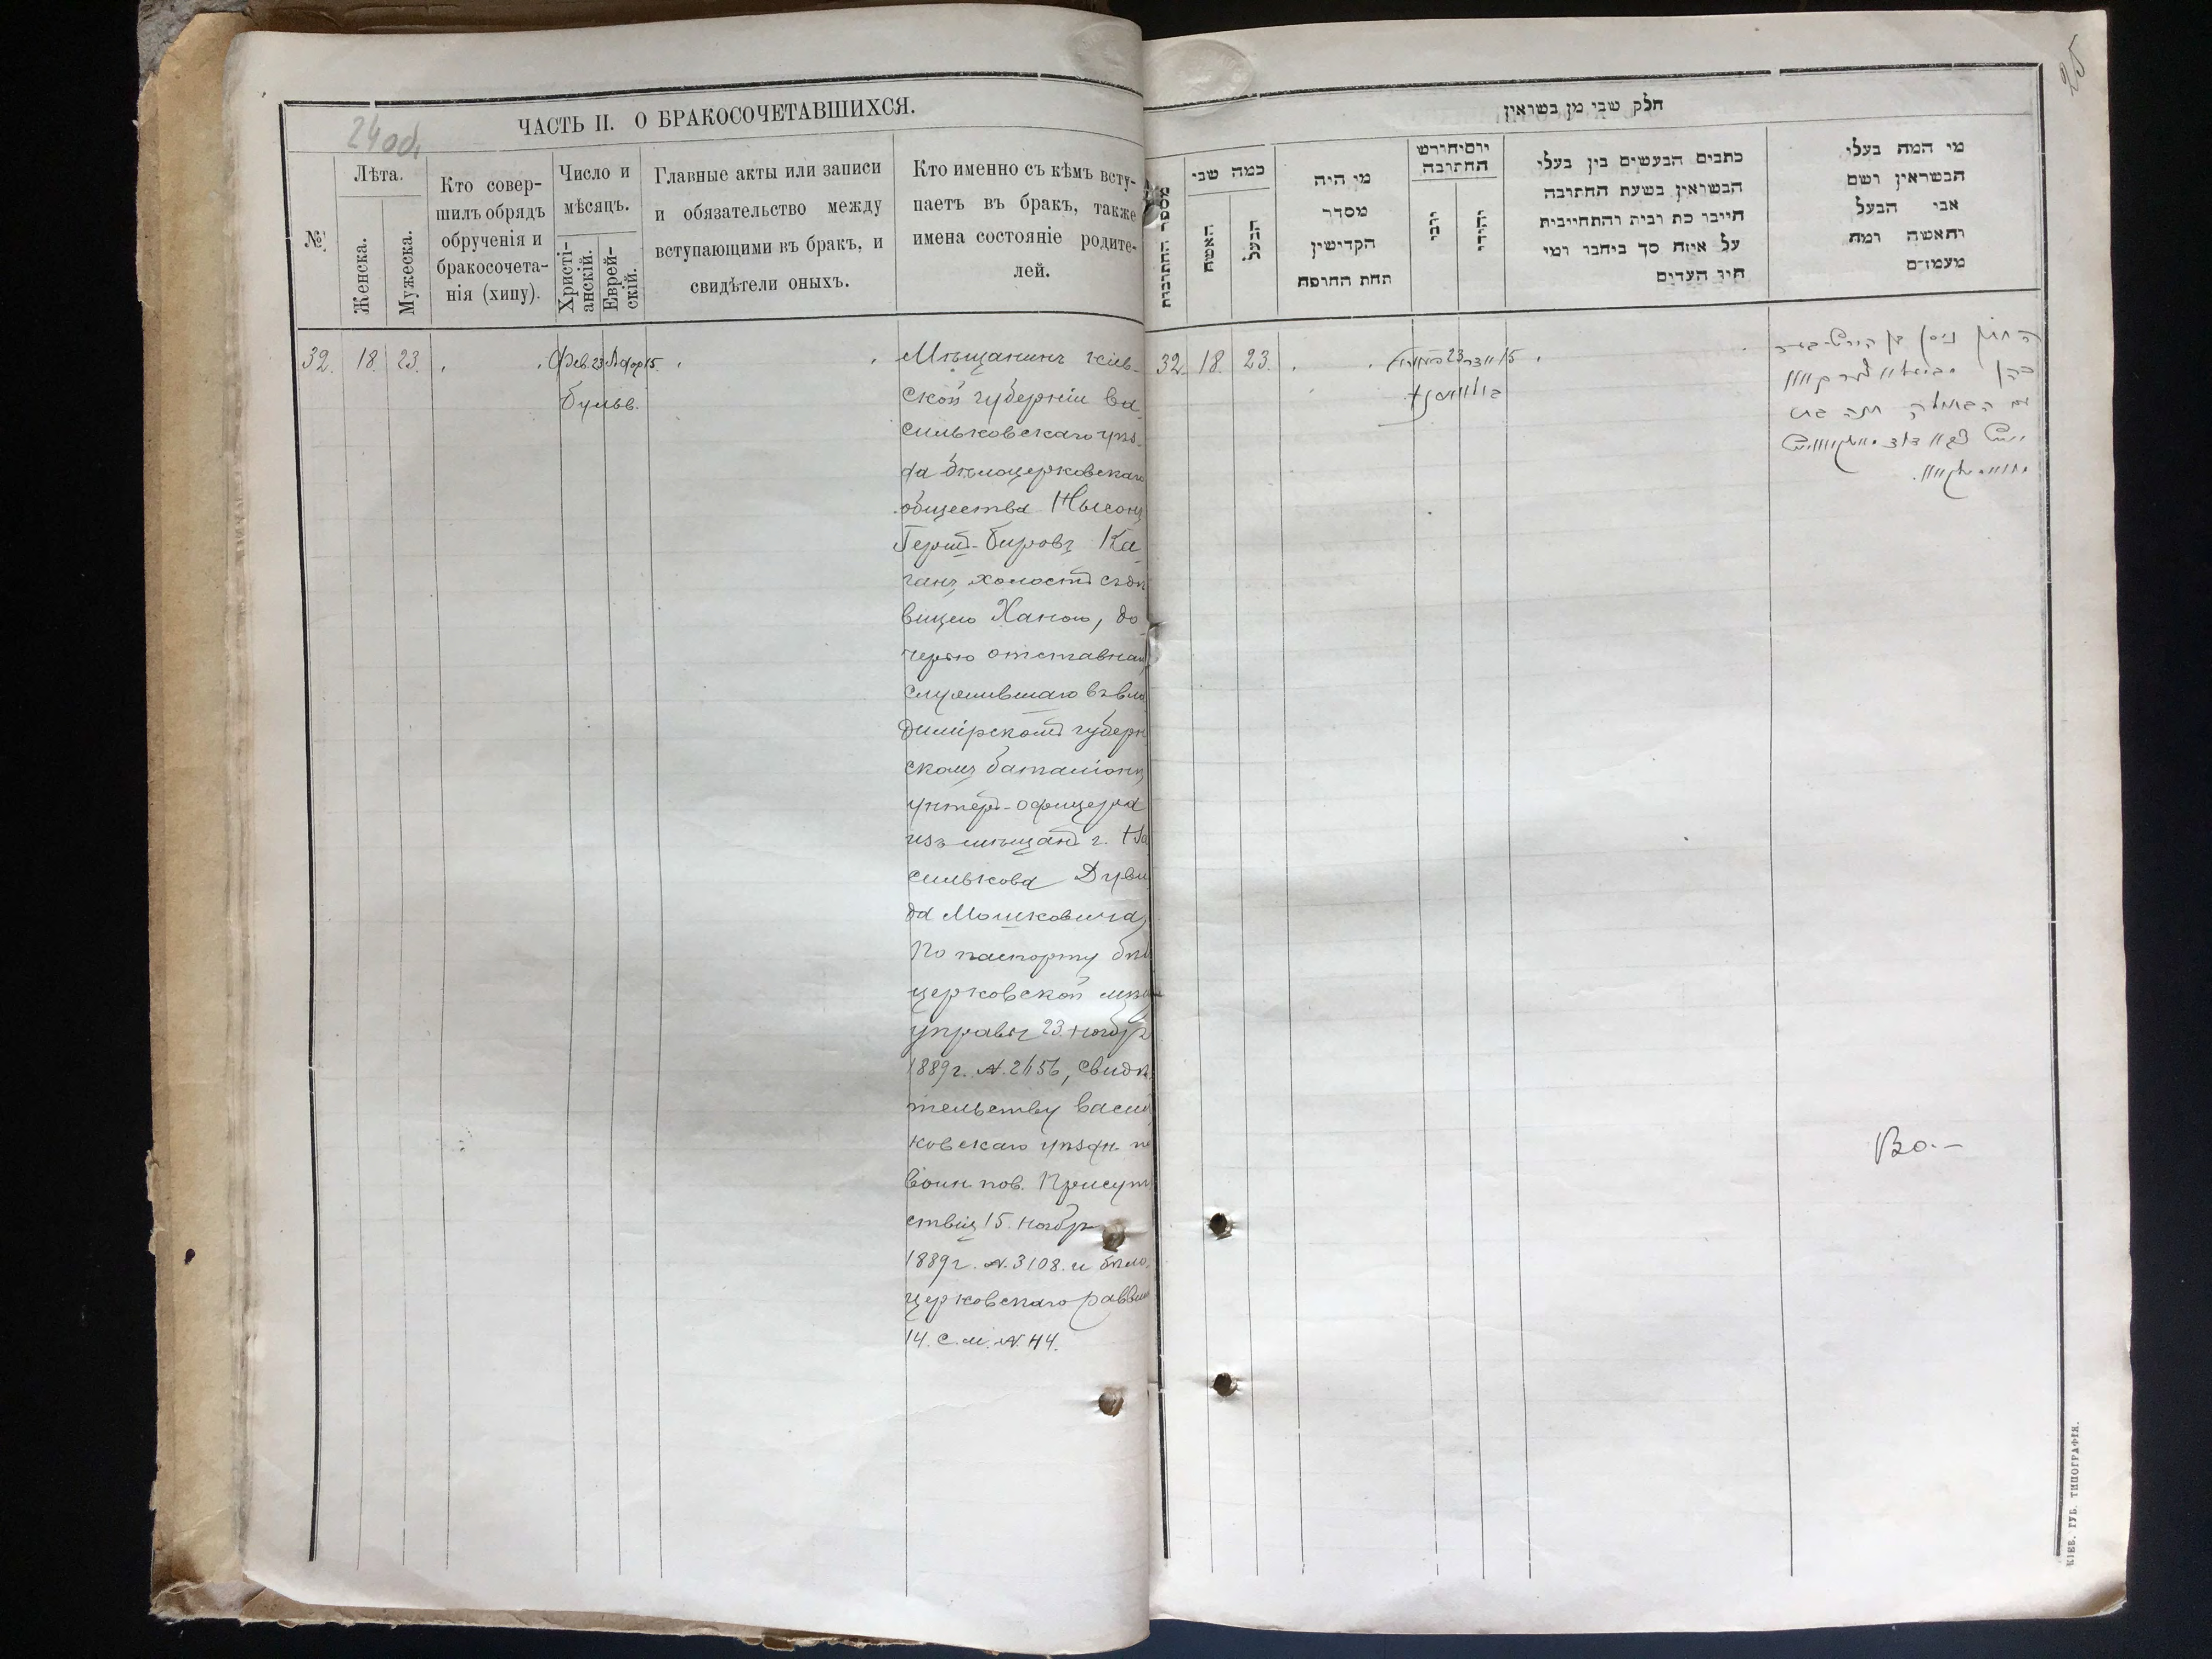 24 об.
ЧАСТЬ II. О БРАКОСОЧЕТАВШИХСЯ.
№
Лѣта.
Женска.
Мужеска.
Кто совер-
шилъ обрядъ
обрученія и
бракосочета-
нія (хипу).
Число и
мѣсяцъ.
Христі-
анскій.
Еврей-
скій.
Главные акты или записи
и обязательство между
вступающими въ бракъ, и
свидѣтели оныхъ.
Кто именно съ кѣмъ всту-
паетъ въ бракъ, также
имена состояніе родите-
лей.
32. 18. 23. Фев. 23 Адор 15.
бульв.
Мѣщанинъ кіев-
ской губерніи ва-
сильковскаго уѣз-
да бѣлоцерковскаго
общества Нысонъ
Герш-Буровъ Ка-
ганъ, холостъ съ дѣ-
вицею Ханою, до-
черью отставнаго
служившаго въ вла-
димірскомъ губерн
скомъ баталіонѣ
унтеръ-офицера
изъ мѣщанъ г. Ва
силькова Дуви
да Мошковича,
По паспорту бѣло
церковской мѣщ
управы 23. ноябр
1889 г. N. 2656, свидѣ
тельству Василь
ковскаго уѣздн. по
воин пов. Присут
ствія 15. ноябр
1889 г. N. 3108. и бѣло-
церковскаго раввин
14. с. м. N. 44.
25
חלק שבי מן בשראין
מספר החתובות
כמה שבי
האשה
הבעל
מי היה
מסדר
הקדישין
תחת החופה
יום יחורש
החתובה
יהודי
כתבים הבעשים בין בעלי
הבשואין בשעת החתובה
חייבו כת וביה והתחייבית
על איזה סך ביחבו ומי
חיו העדים
מי המה בעלי
הבשראין ושם
אבי הבעל
והאשה ומה
מעמדם
32. 18. 23. 23 15
ה
כהן
עם הבתולה חנה בת
דוד
Во.—
КІЕВ. ГУБ. ТИПОГРАФІЯ.